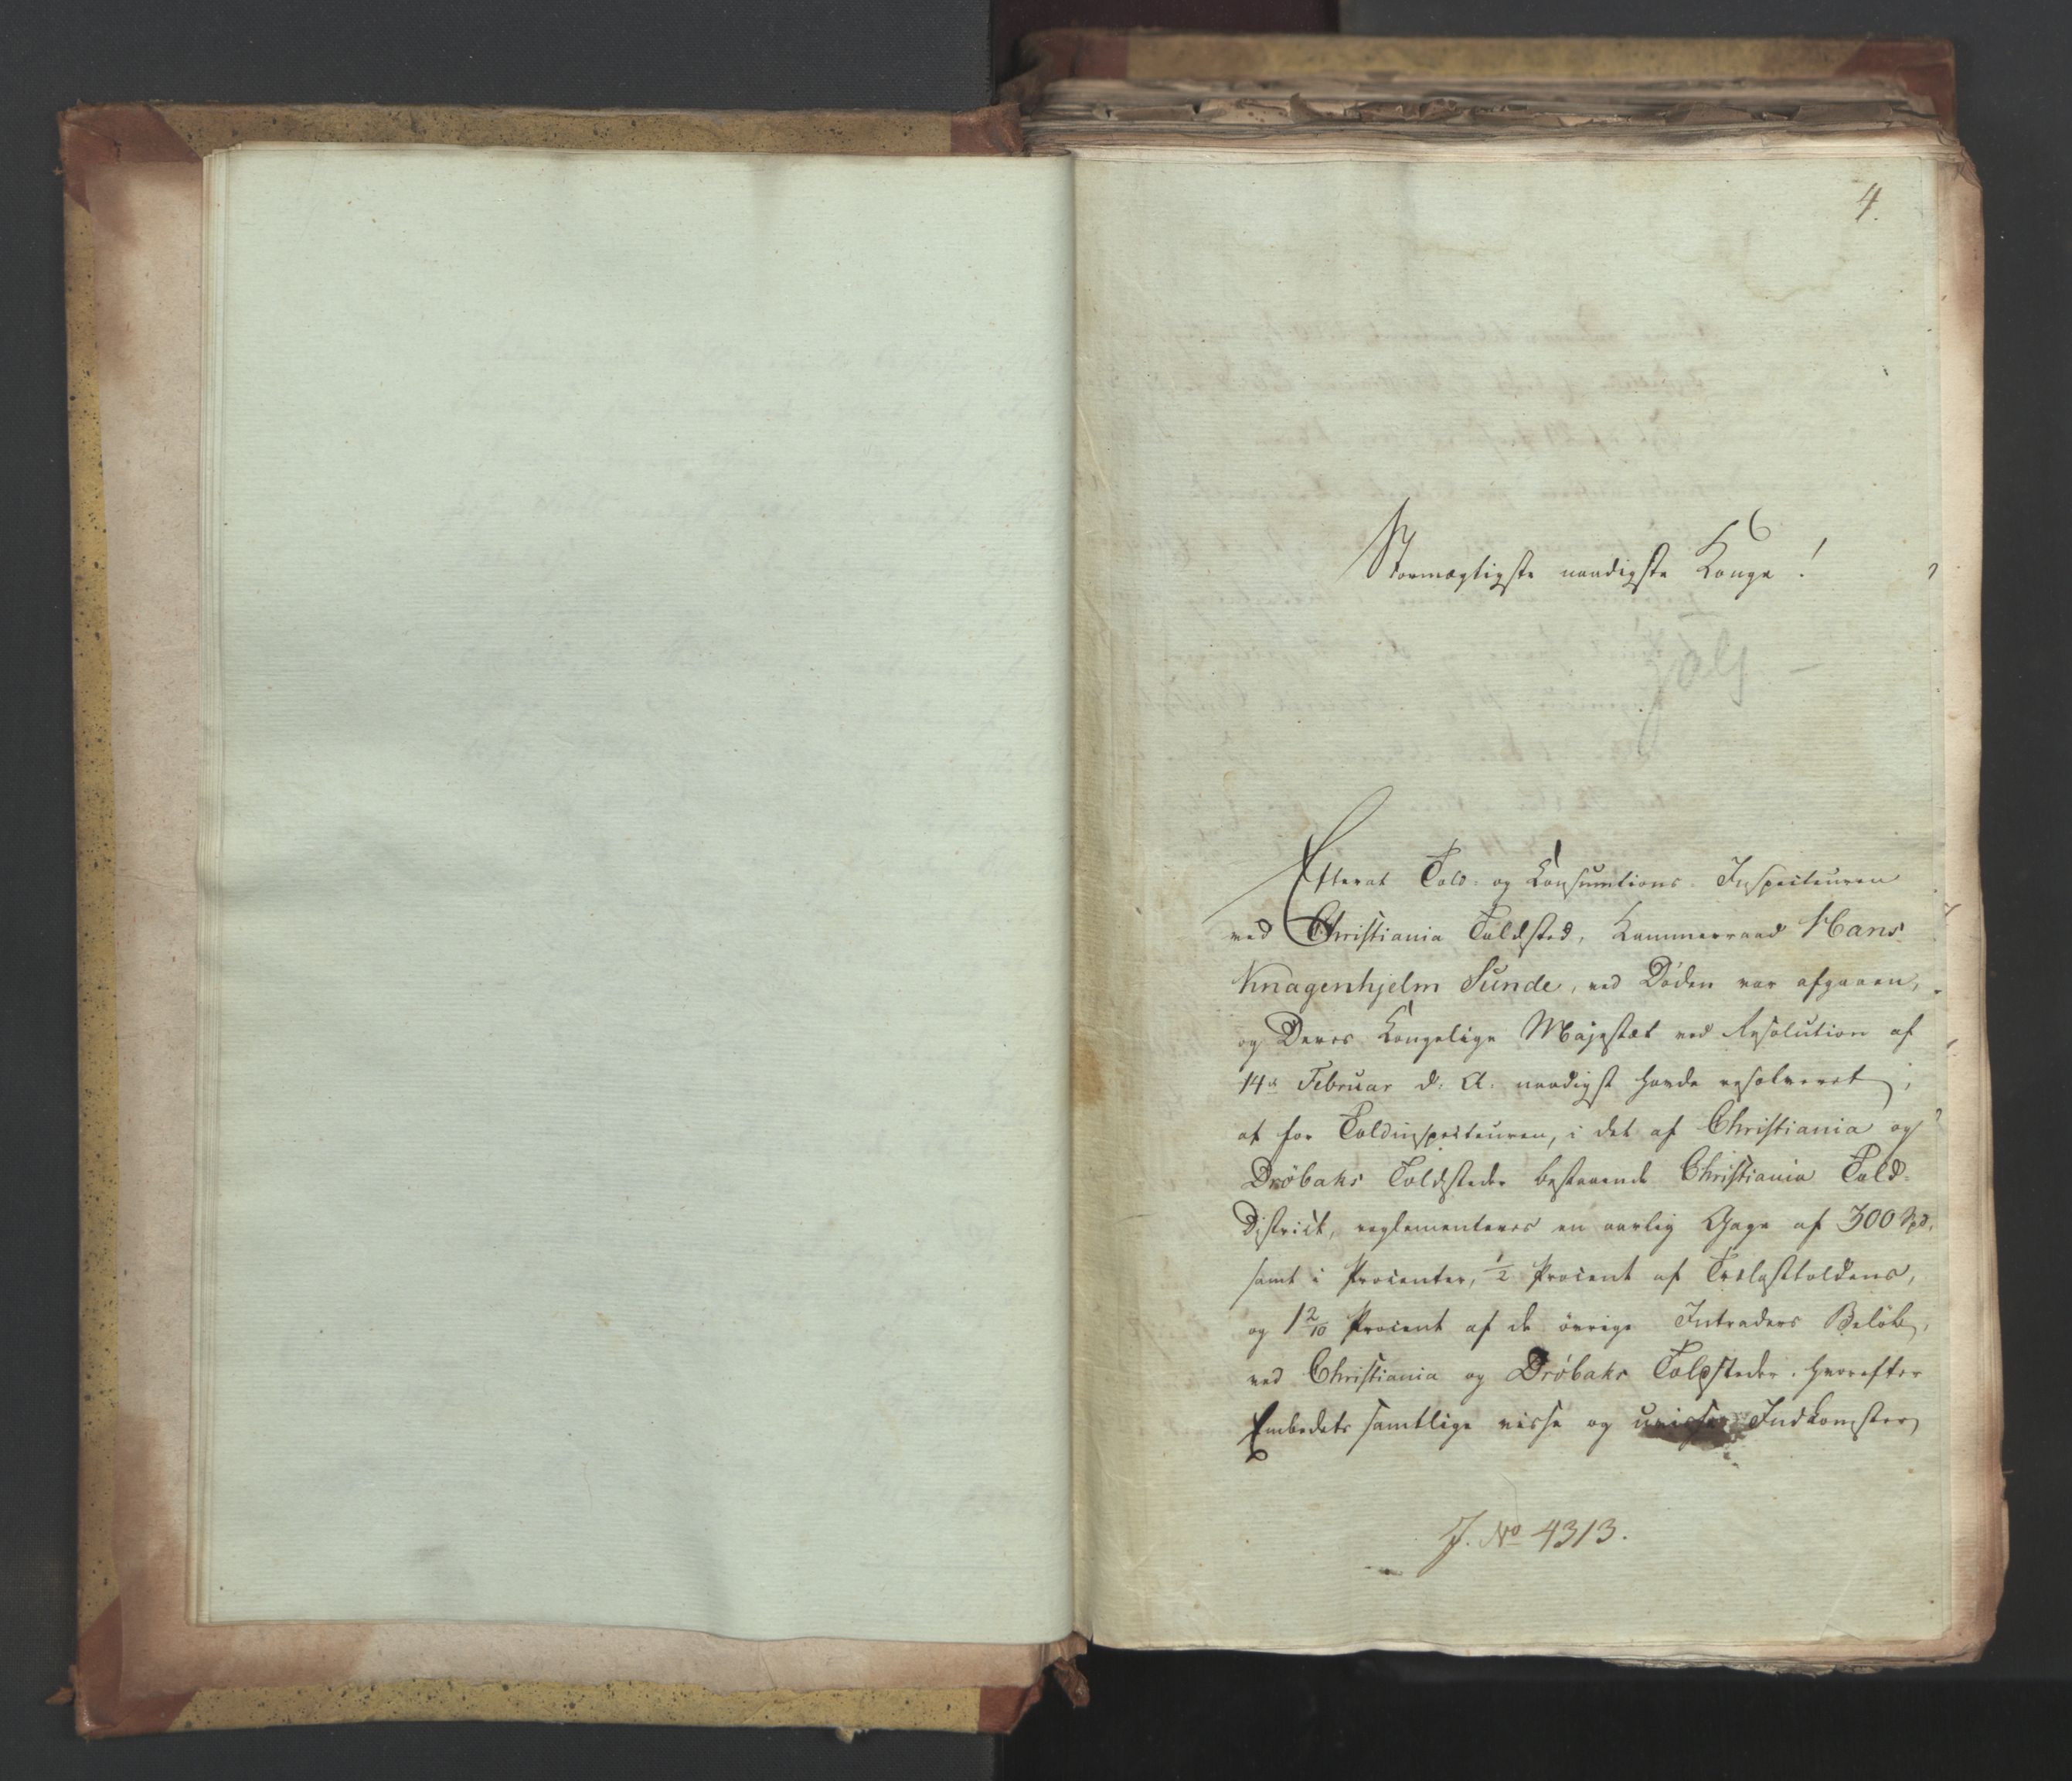 4.
Stormægtigste naadigste Konge!
Efterat Told- og Konsumtions-Inspecteuren
ved Christiania Toldsted, Kammerraad Hans
Knagenhjelm Sunde, ved Døden var afgaaen,
og Deres Kongelige Majestæt ved Resolution af
14de Februar d. A. naadigst havde resolveret,
at for Toldinspecteuren, i det af Christiania og
Drøbaks Toldsteder bestaaende Christiania Told-
District, reglementeres en aarlig Gage af 300 Spd,
samt i Procenter, 1/2 Procent af Trælasttoldens,
og 1 2/10 Procent af de øvrige Intraders Beløb,
ved Christiania og Drøbaks Toldsteder. hvorefter
Embedets samtlige visse og uvisse Indkomster
J. No 4313.